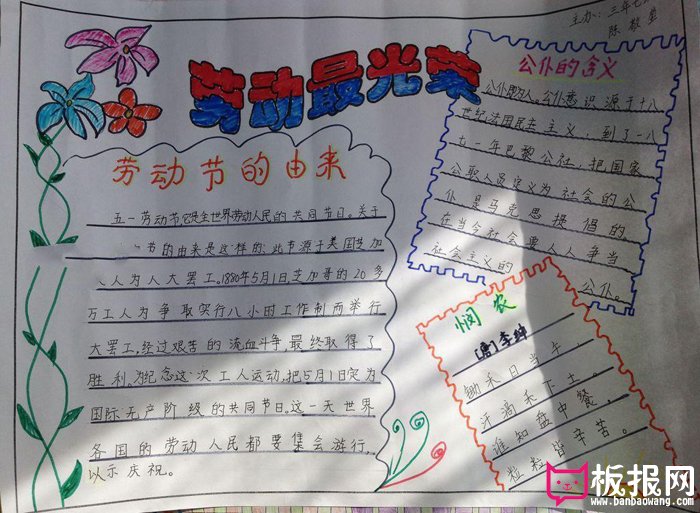 主办：三年七
陈敬
劳动最光荣
劳动节的由来
五一劳动节它是全世界劳动人民的共同节日。关于
节的由来是这样的，此节源于美国芝加
人为人大罢工。1880年5月1日，芝加哥的20多
万工人为争取实行八小时工作制而举行
大罢工，经过艰苦的流血斗争，最终取得了
胜利。为纪念这次工人运动，把5月1日定为
国际无产阶级的共同节日。这一天世界
各国的劳动人民都要集会游行，
以示庆祝。
公仆的含义
公仆即为人。公仆意识源于十八
世纪法国民主主义，到了一八
七一年巴黎公社，把国家
公职人员定义为社会的公
仆是马克思提倡的。
在当今社会要人人争当
社会主义的公仆。
悯农
[唐]李绅
锄禾日当午，
汗滴禾下土。
谁知盘中餐，
粒粒皆辛苦。
板报网
www.banbaowang.com